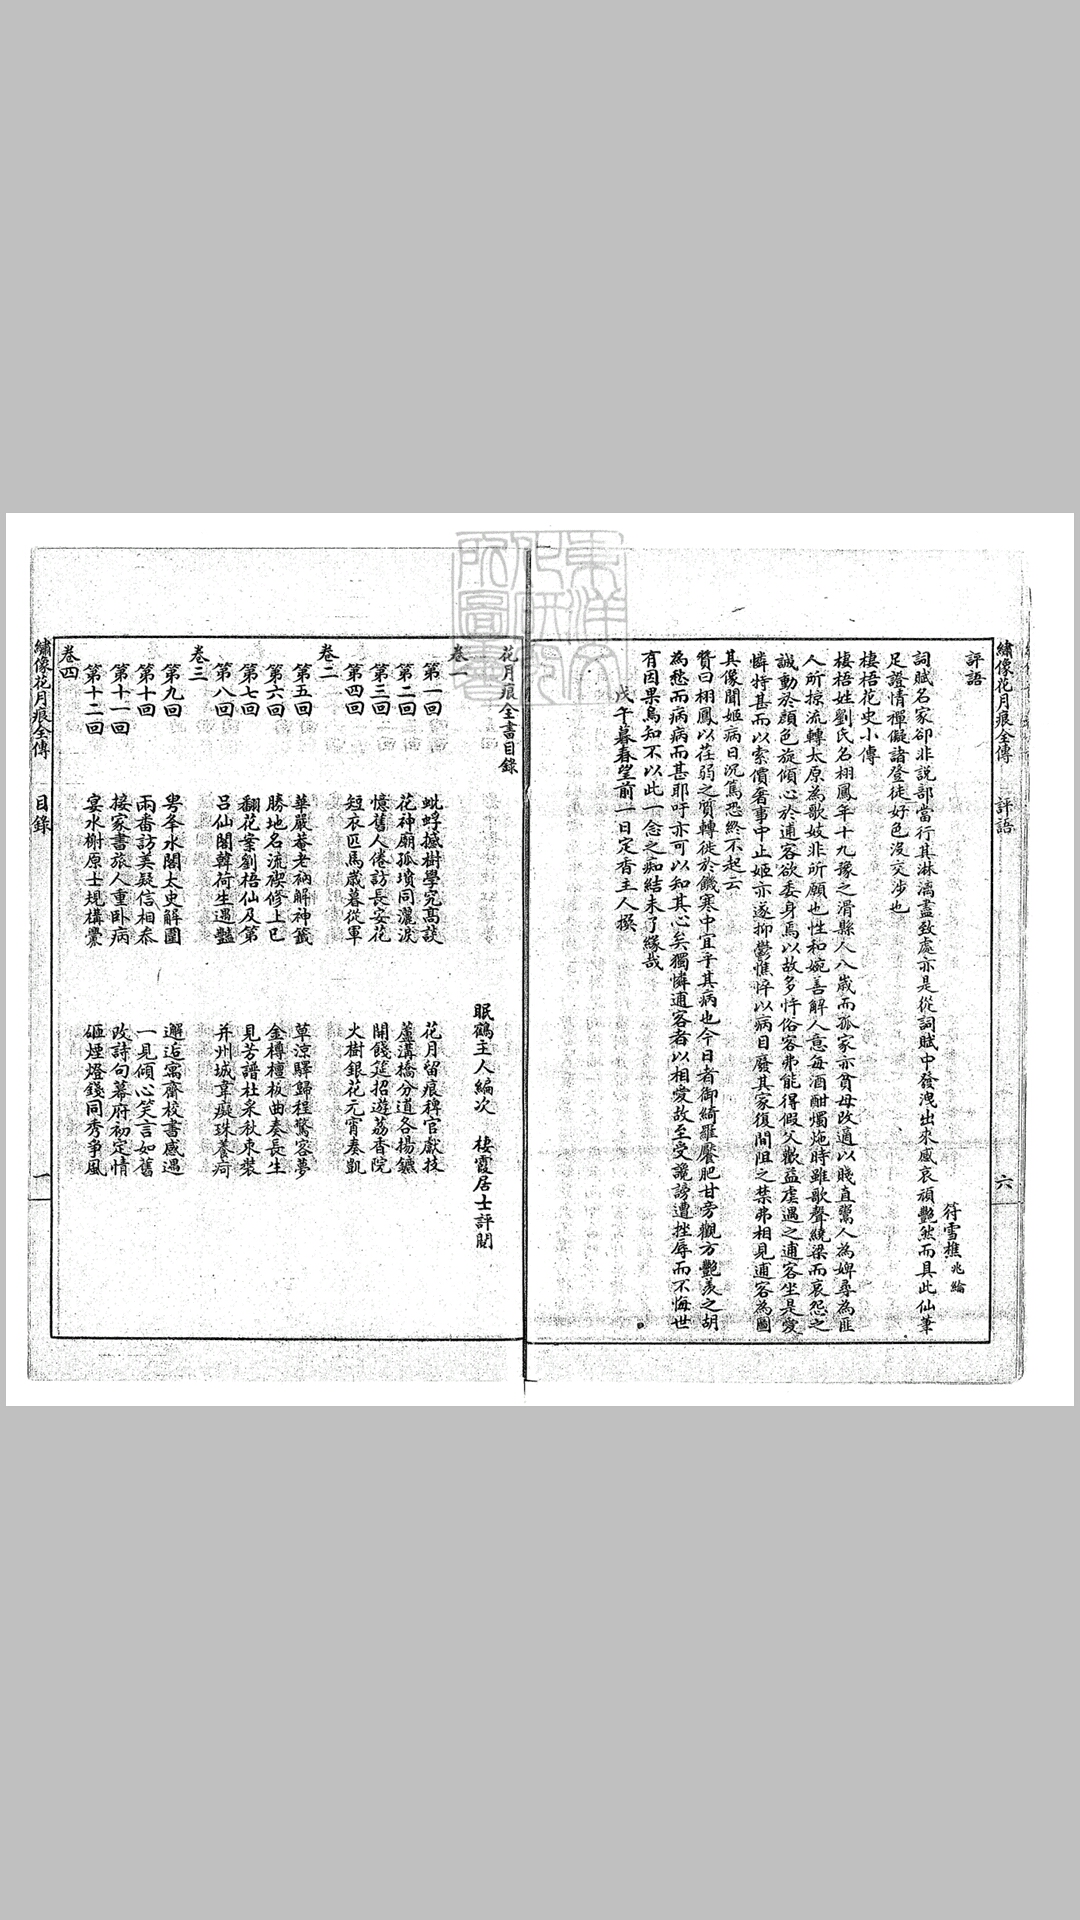 繡像花月痕全傳 評語 六
評語
符雪樵兆綸
詞賦名家卻非說部當行其淋漓盡致處亦是從詞賦中發洩出來感哀頑艷然而具此仙筆
足證情禪儗諸登徒好色沒交涉也
棲梧花史小傳
棲梧姓劉氏名栩鳳年十九豫之滑縣人八歲而孤家亦貧母改適以賤直鬻人為婢尋為匪
人所掠流轉太原為歌妓非所願也性和婉善解人意每酒酣燭灺時雖歌聲繞梁而哀怨之
誠動於顏色旋傾心於逋客欲委身焉以故多忤俗客弗能得假父歡益虐遇之逋客坐是愛
憐特甚而以索償奢事中止姬亦遂抑鬱憔悴以病目廢其家復間阻之禁弗相見逋客為圖
其像聞姬病日沉篤恐終不起云
贊曰栩鳳以荏弱之質轉徙於饑寒中宜乎其病也今日者御綺羅饜肥甘旁觀方艷羨之胡
為愁而病病而甚耶吁亦可以知其心矣獨憐逋客者以相愛故至受譏謗遭挫辱而不悔世
有因果烏知不以此一念之痴結未了緣哉
戊午暮春望前一日定香主人撰
東洋文化研究所圖書
花月痕全書目錄
眠鶴主人編次 棲霞居士評閱
卷一
第一回 蚍蜉撼樹學究高談 花月留痕稗官獻技
第二回 花神廟孤墳同灑淚 蘆溝橋分道各揚鑣
第三回 憶舊人倦訪長安花 開餞筵招遊荔香院
第四回 短衣匹馬歲暮從軍 火樹銀花元宵奏凱
卷二
第五回 華嚴菴老衲解神籤 草涼驛歸程驚客夢
第六回 勝地名流禊修上巳 金樽檀板曲奏長生
第七回 翻花案劉梧仙及第 見芳譜杜采秋束裝
第八回 呂仙閣韓荷生遇豔 并州城韋癡珠養疴
卷三
第九回 甹夆水閣太史解圍 邂逅寓齋校書感遇
第十回 兩番訪美疑信相叅 一見傾心笑言如舊
第十一回 接家書旅人重臥病 改詩句幕府初定情
第十二回 宴水榭原士規構釁 砸煙燈錢同秀爭風
卷四
繡像花月痕全傳 目錄 一